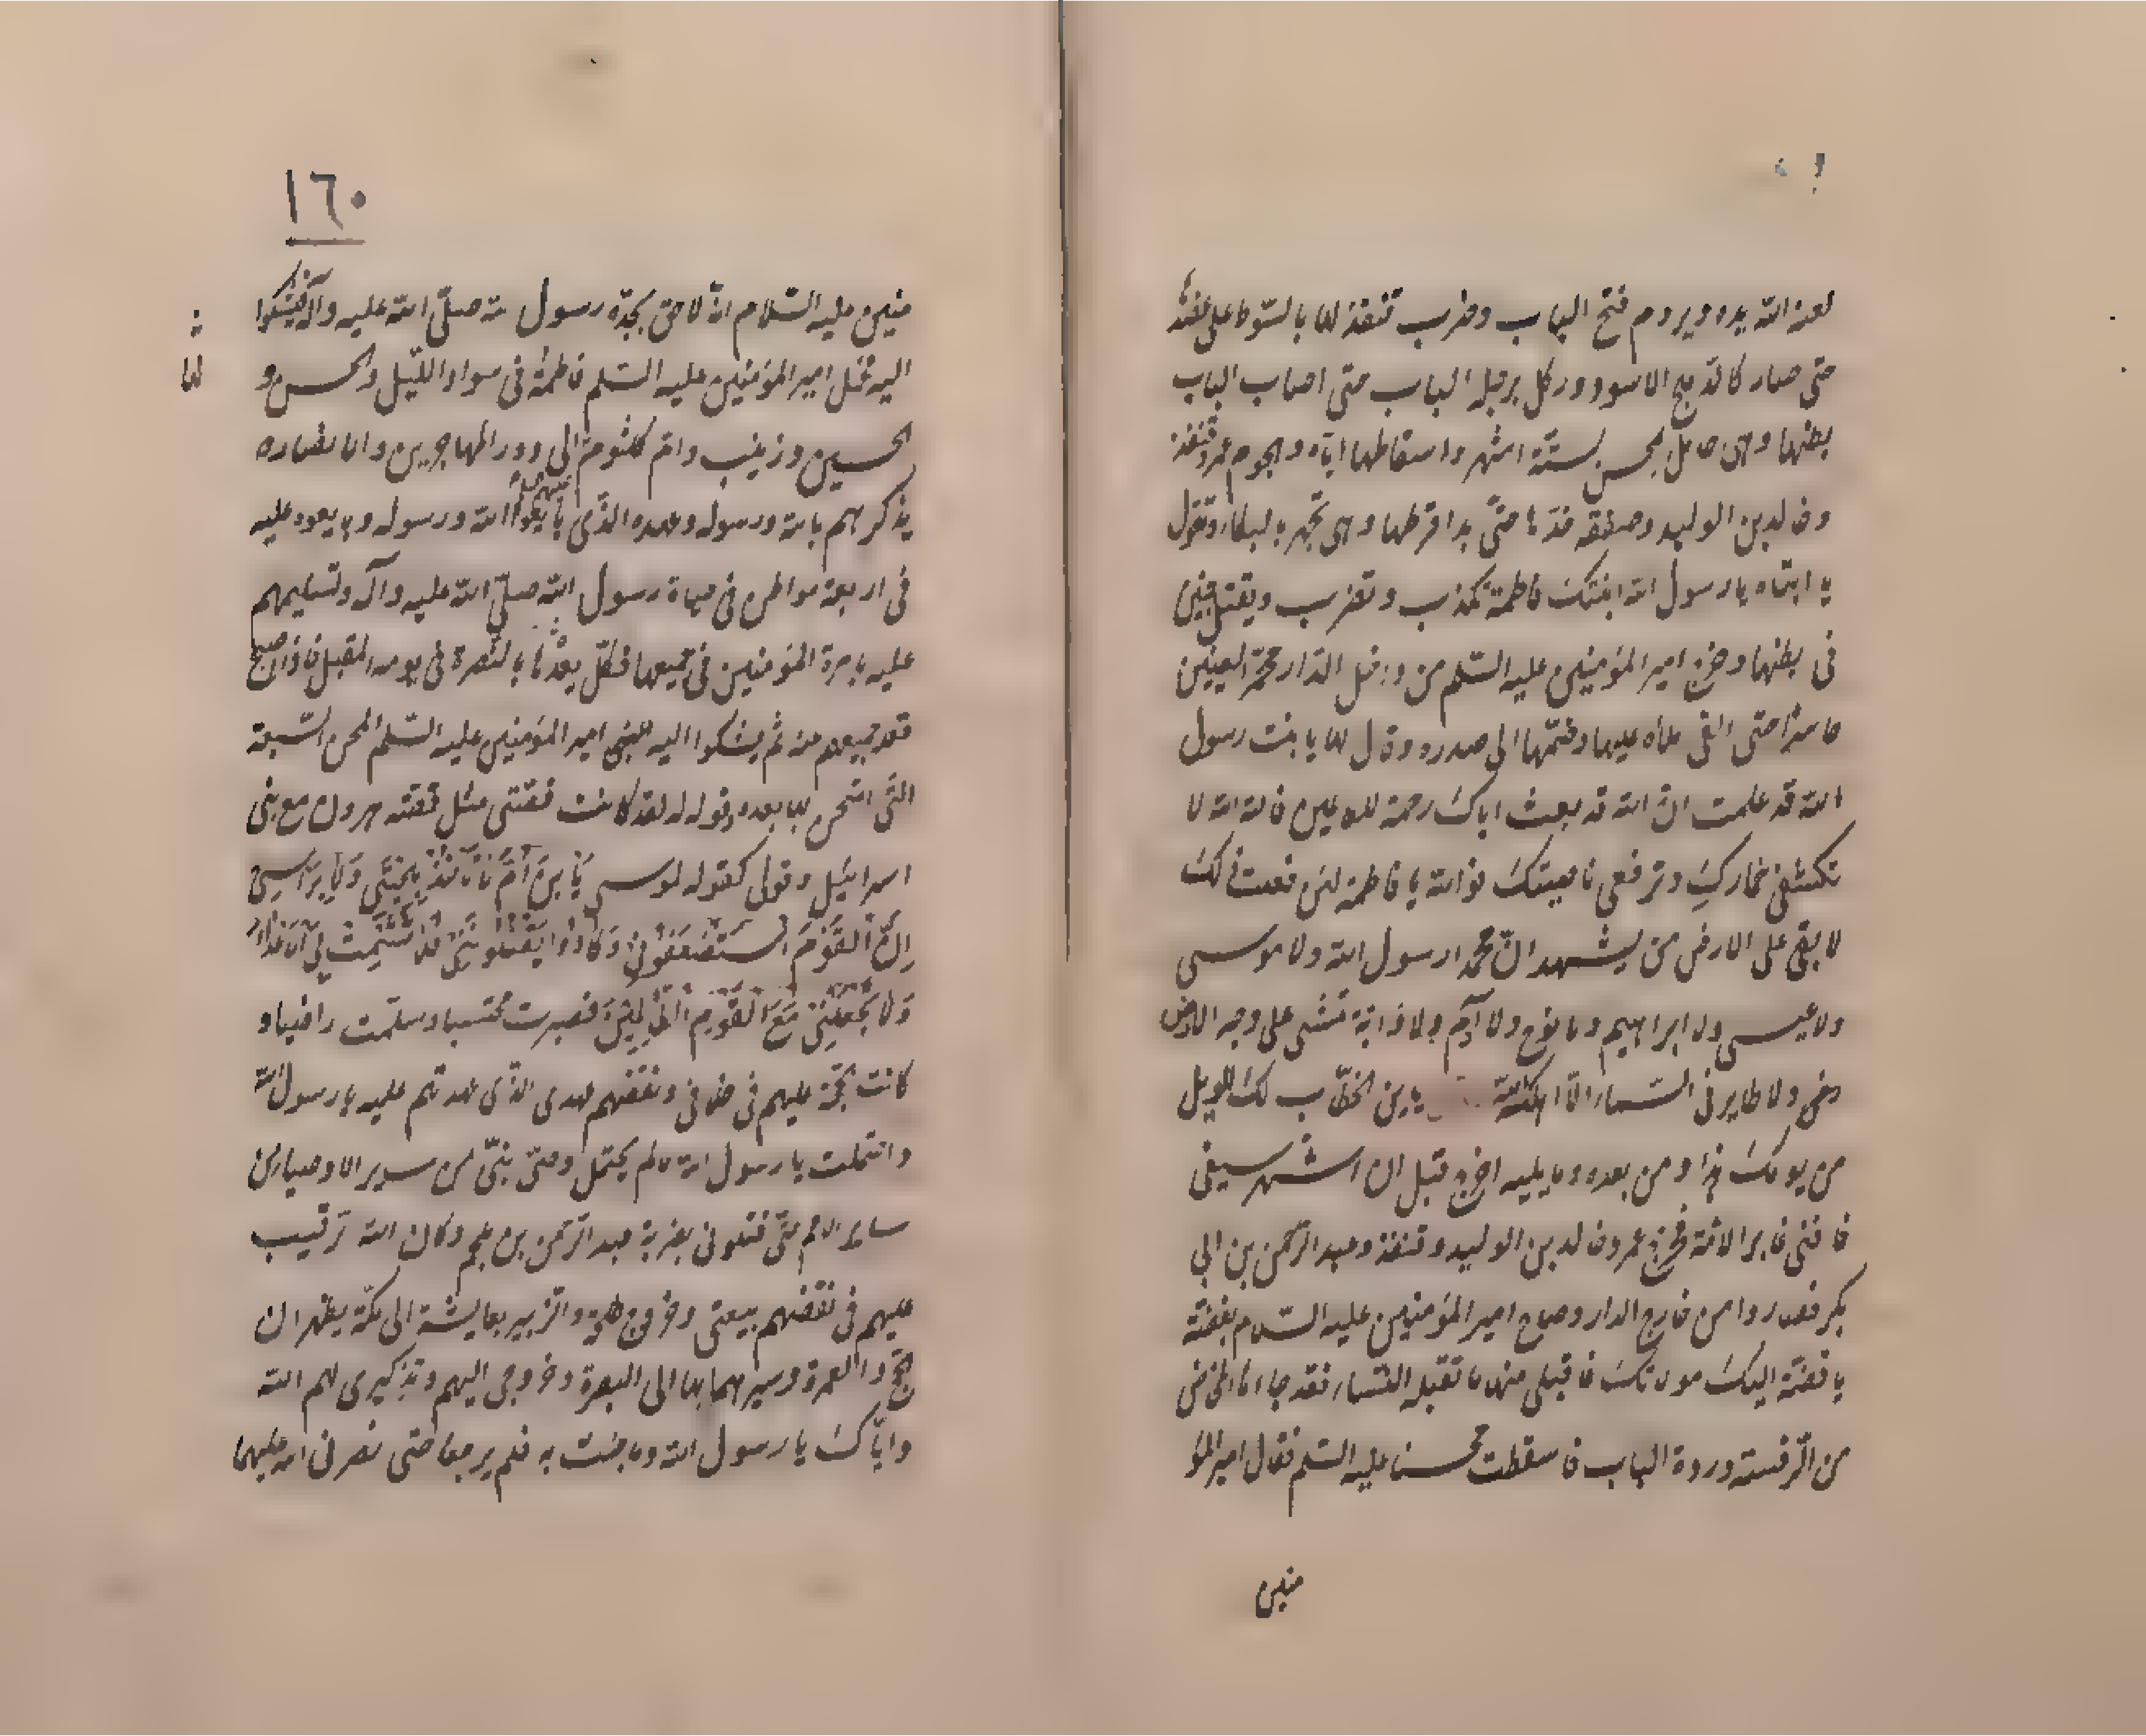 لعنه الله يده ويروم فتح الباب وضرب قنفذ لها بالسوط على عضدها
حتى صار كالدملج الاسود وركل برجله الباب حتى اصاب الباب
بطنها وهى حامل بمحسن لستّة اشهر واسقاطها ايّاه وهجوم عمر وقنفذ
وخالد بن الوليد وصفقه خدّها حتّى بدا قرطها وهى تجهر بالبكاء وتقول
يا ابتاه يا رسول الله ابنتك فاطمة تكذب وتضرب ويقتل جنين
فى بطنها وخرج امير المؤمنين عليه السّلم من داخل الدّار محمرّ العينين
حاسرا حتى القى ملأه عليها وضمّها الى صدره وقال لها يا بنت رسول
الله قد علمت انّ الله قد بعث اباك رحمة للعالمين فالله الله لا
تكشفى خمارك وترفعى ناصيتك فوالله يا فاطمة لئن فعلت ذلك
لا بقى على الارض من يشهد انّ محمدا رسول الله ولا موسى
ولا عيسى ولا ابراهيم ولا نوح ولا آدم ولا دابّة تمشى على وجه الارض
ولا طاير فى السّماء الّا اهلكه الله يا بن الخطّاب لك الويل
من يومك هذا ومن بعده وما يليه اخرج قبل ان اشهر سيفى
فافنى غابر الامّة فخرج عمر وخالد بن الوليد وقنفذ وعبد الرّحمن بن ابى
بكر فصاروا من خارج الدار وصاح امير المؤمنين عليه السّلام بفضّة
يا فضّة اليك مولاتك فاقبلى منها ما تقبله النّساء فقد جاءها المخاض
من الرّفسة وردّة الباب فاسقطت محسنا عليه السّلم فقال امير المؤ
منين
١٦٠
منين عليه السّلام انّه لاحق بجدّه رسول الله صلّى الله عليه وآله فيشكوا
اليه وحمل امير المؤمنين عليه السّلم فاطمة فى سواد اللّيل والحسن و
الحسين وزينب وامّ كلثوم الى دور المهاجرين والانصار
يذكرهم بالله ورسوله وعهده الّذى بايعوا الله ورسوله وبايعوه عليه
فى اربعة مواطن فى حياة رسول الله صلّى الله عليه وآله وتسليمهم
عليه بامرة المؤمنين فى جميعها فكلّ يعدها بالنّصرة فى يومه المقبل فاذا اصبح
قعد جميعهم عنه ثم يشكوا اليه امير المؤمنين عليه السّلم المحن السّبعة
التّى امتحن بها بعده وقوله لقد كانت قصّتى مثل قصّة هرون مع بنى
اسرائيل وقولى كقوله لموسى يَا بنَ اُمَّ لَا تَأخُذ بِلِحيَتِى وَلَا بِرَأسِى
اِنَّ القَومَ استَضعَفُونِى وَكَادُوا يَقتُلُونَنِى فَلَا تُشمِت بِىَ الاَعدَاءَ
وَلَا تَجعَلنِى مَعَ القَومِ الظَّالِمِينَ فصبرت محتسبا وسلّمت راضيا و
كانت الحجّة عليهم فى خلافى ونقضهم عهدى الّذى عاهدتهم عليه يا رسول الله
واحتملت يا رسول الله ما لم يحتمل وصىّ نبىّ من ساير الاوصياء من
ساير الامم حتّى قتلونى بضربة عبد الرّحمن بن ملجم وكان الله الرّقيب
عليهم فى نقضهم بيعتى وخروج طلحة والزّبير بعايشة الى مكّة يظهران
الحجّ والعمرة وسيرهما بها الى البصرة وخروجى اليهم وتذكيرى لهم الله
وايّاك يا رسول الله وما جئت به فلم يرجعا حتى نصرنى الله عليهما